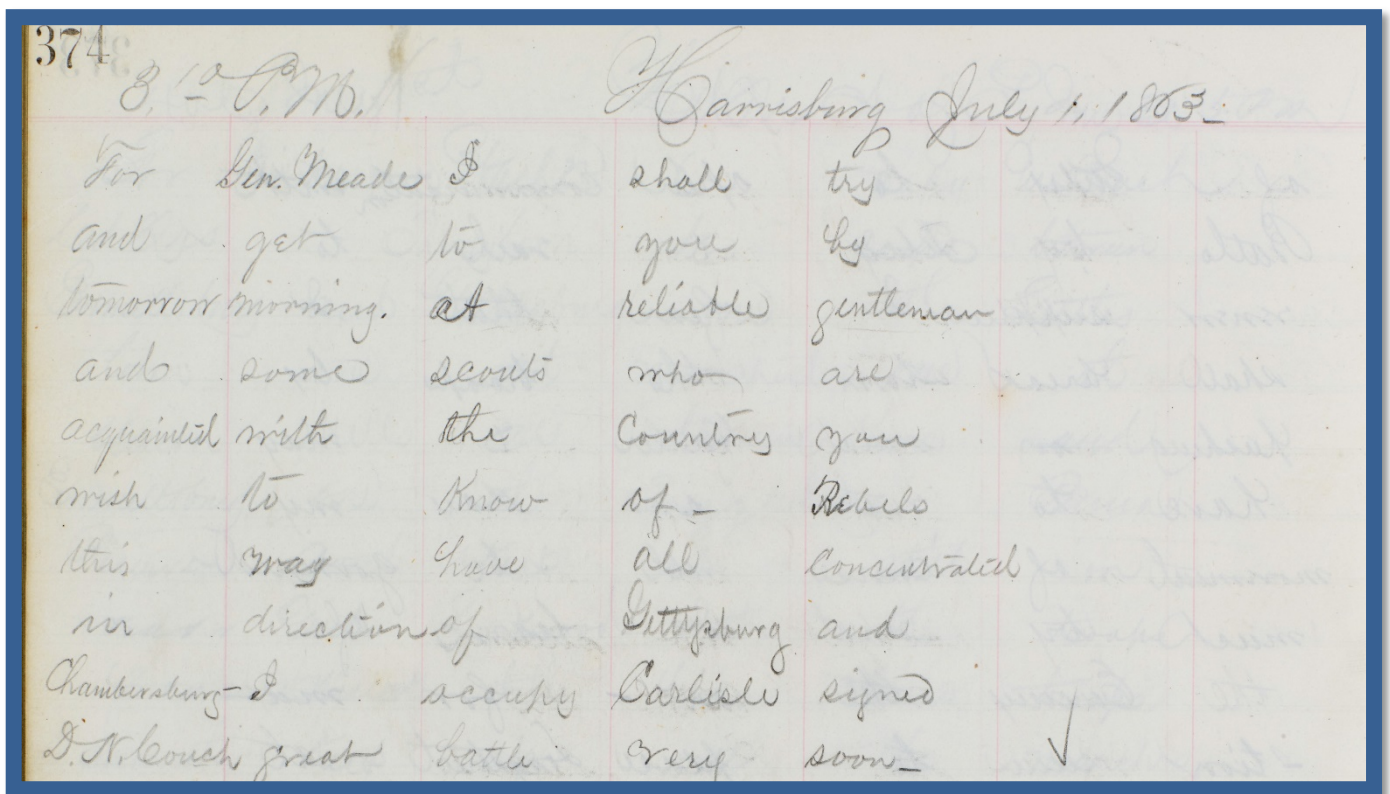 374
8.10 P.M. Harrisburg July 1, 1863
For Gen. Meade I shall try
and get to you by
tomorrow morning. at reliable gentleman
and some scouts who are
acquainted with the Country you
wish to Know of – Rebels
this way have all Concentrated
in direction of Gettysburg and
Chambersburg – I occupy Carlisle signed
D. N. Couch great battle very soon –